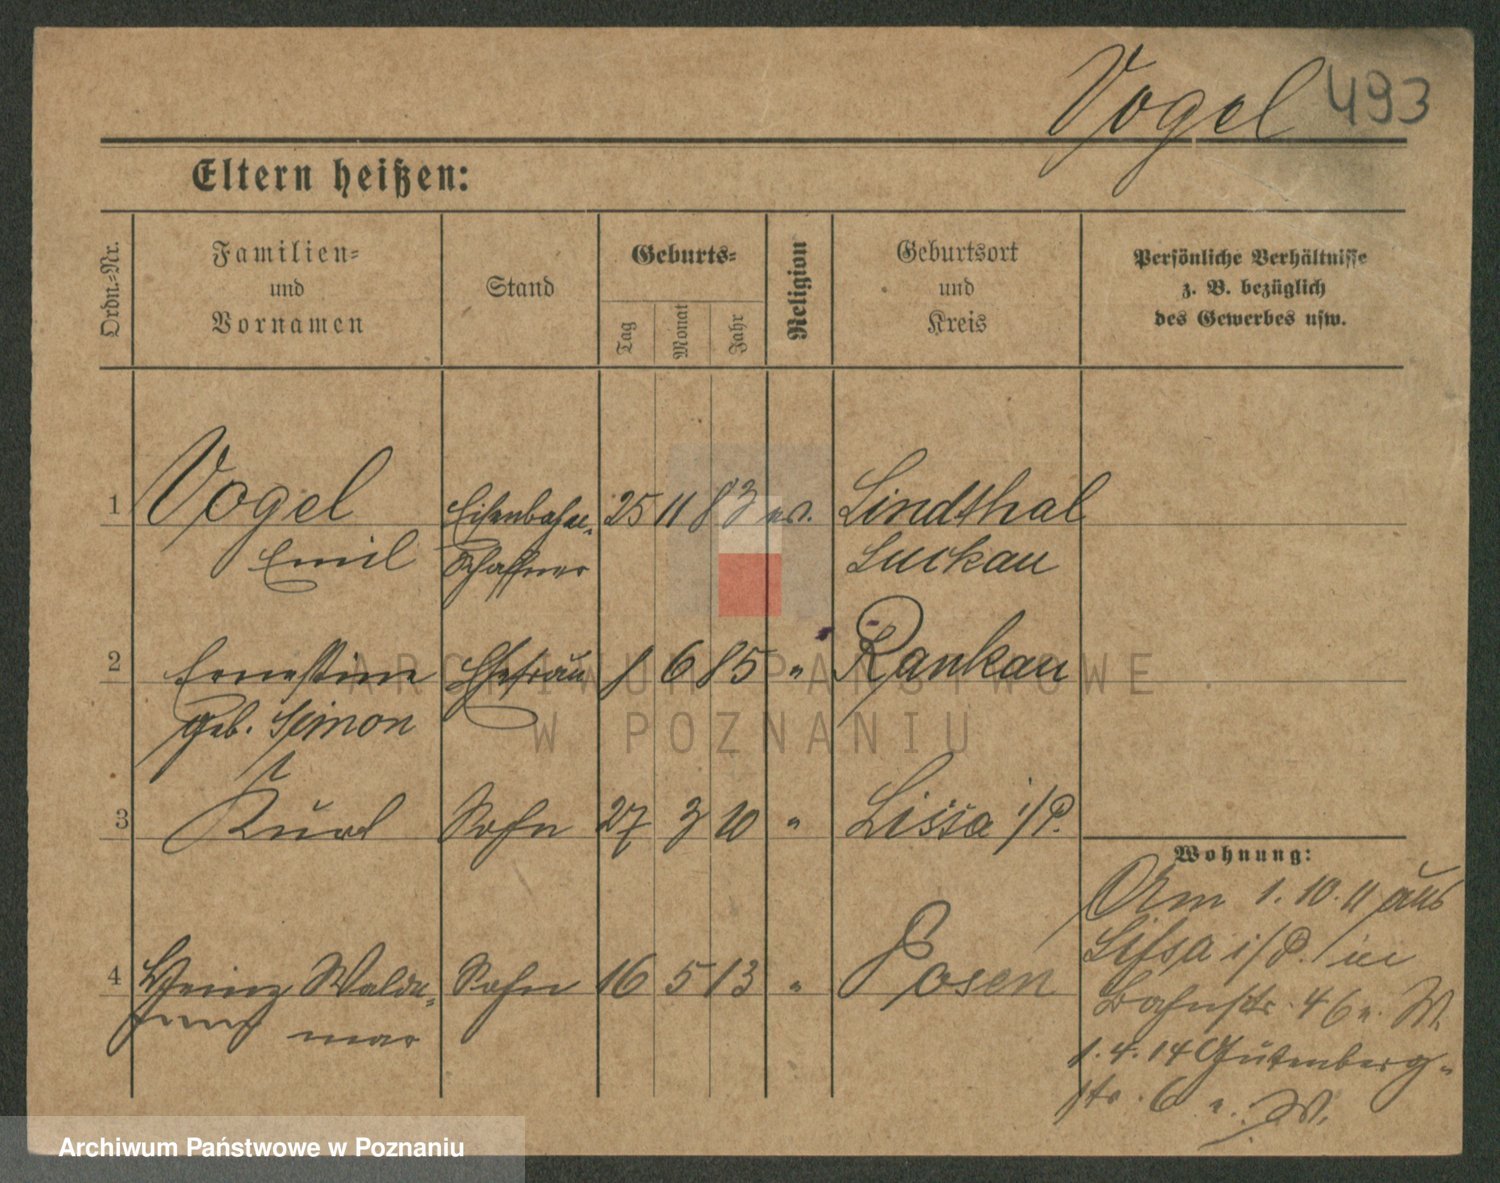 Vogel 493
Eltern heißen:
Ordn.-Nr.
Familien-
und
Vornamen
Stand
Geburts-
Tag
Monat
Jahr
Religion
Geburtsort
und
Kreis
Persönliche Verhältnisse
z. B. bezüglich
des Gewerbes usw.
1 Vogel Eisenbahn- 25 11 83 ev. Lindthal
Emil Schaffner Luckau
2 Ernestine Ehefrau 8 6 85 " Rankau
geb. Simon
3 Kurt Sohn 27 3 10 " Lissa i/P.
Wohnung:
Am 1.10.11 aus
Lissa i/P. in
4 Heinz Walde- Sohn 16 5 13 " Posen
mar
Bahnstr. 46 a. W.
1.4.14 Gutenberg-
str. 6 a. W.
ARCHIWUM PAŃSTWOWE
W POZNANIU
Archiwum Państwowe w Poznaniu